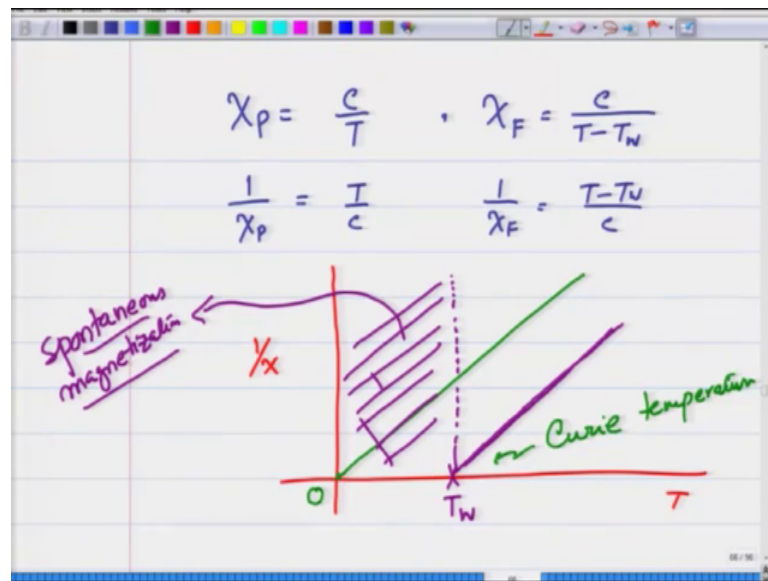 χP = C/T , χF = C/(T-Tw)
1/χP = T/C 1/χF = (T-Tw)/C
Spontaneous
magnetization
1/χ
Curie temperature
O
Tw
T
66/96